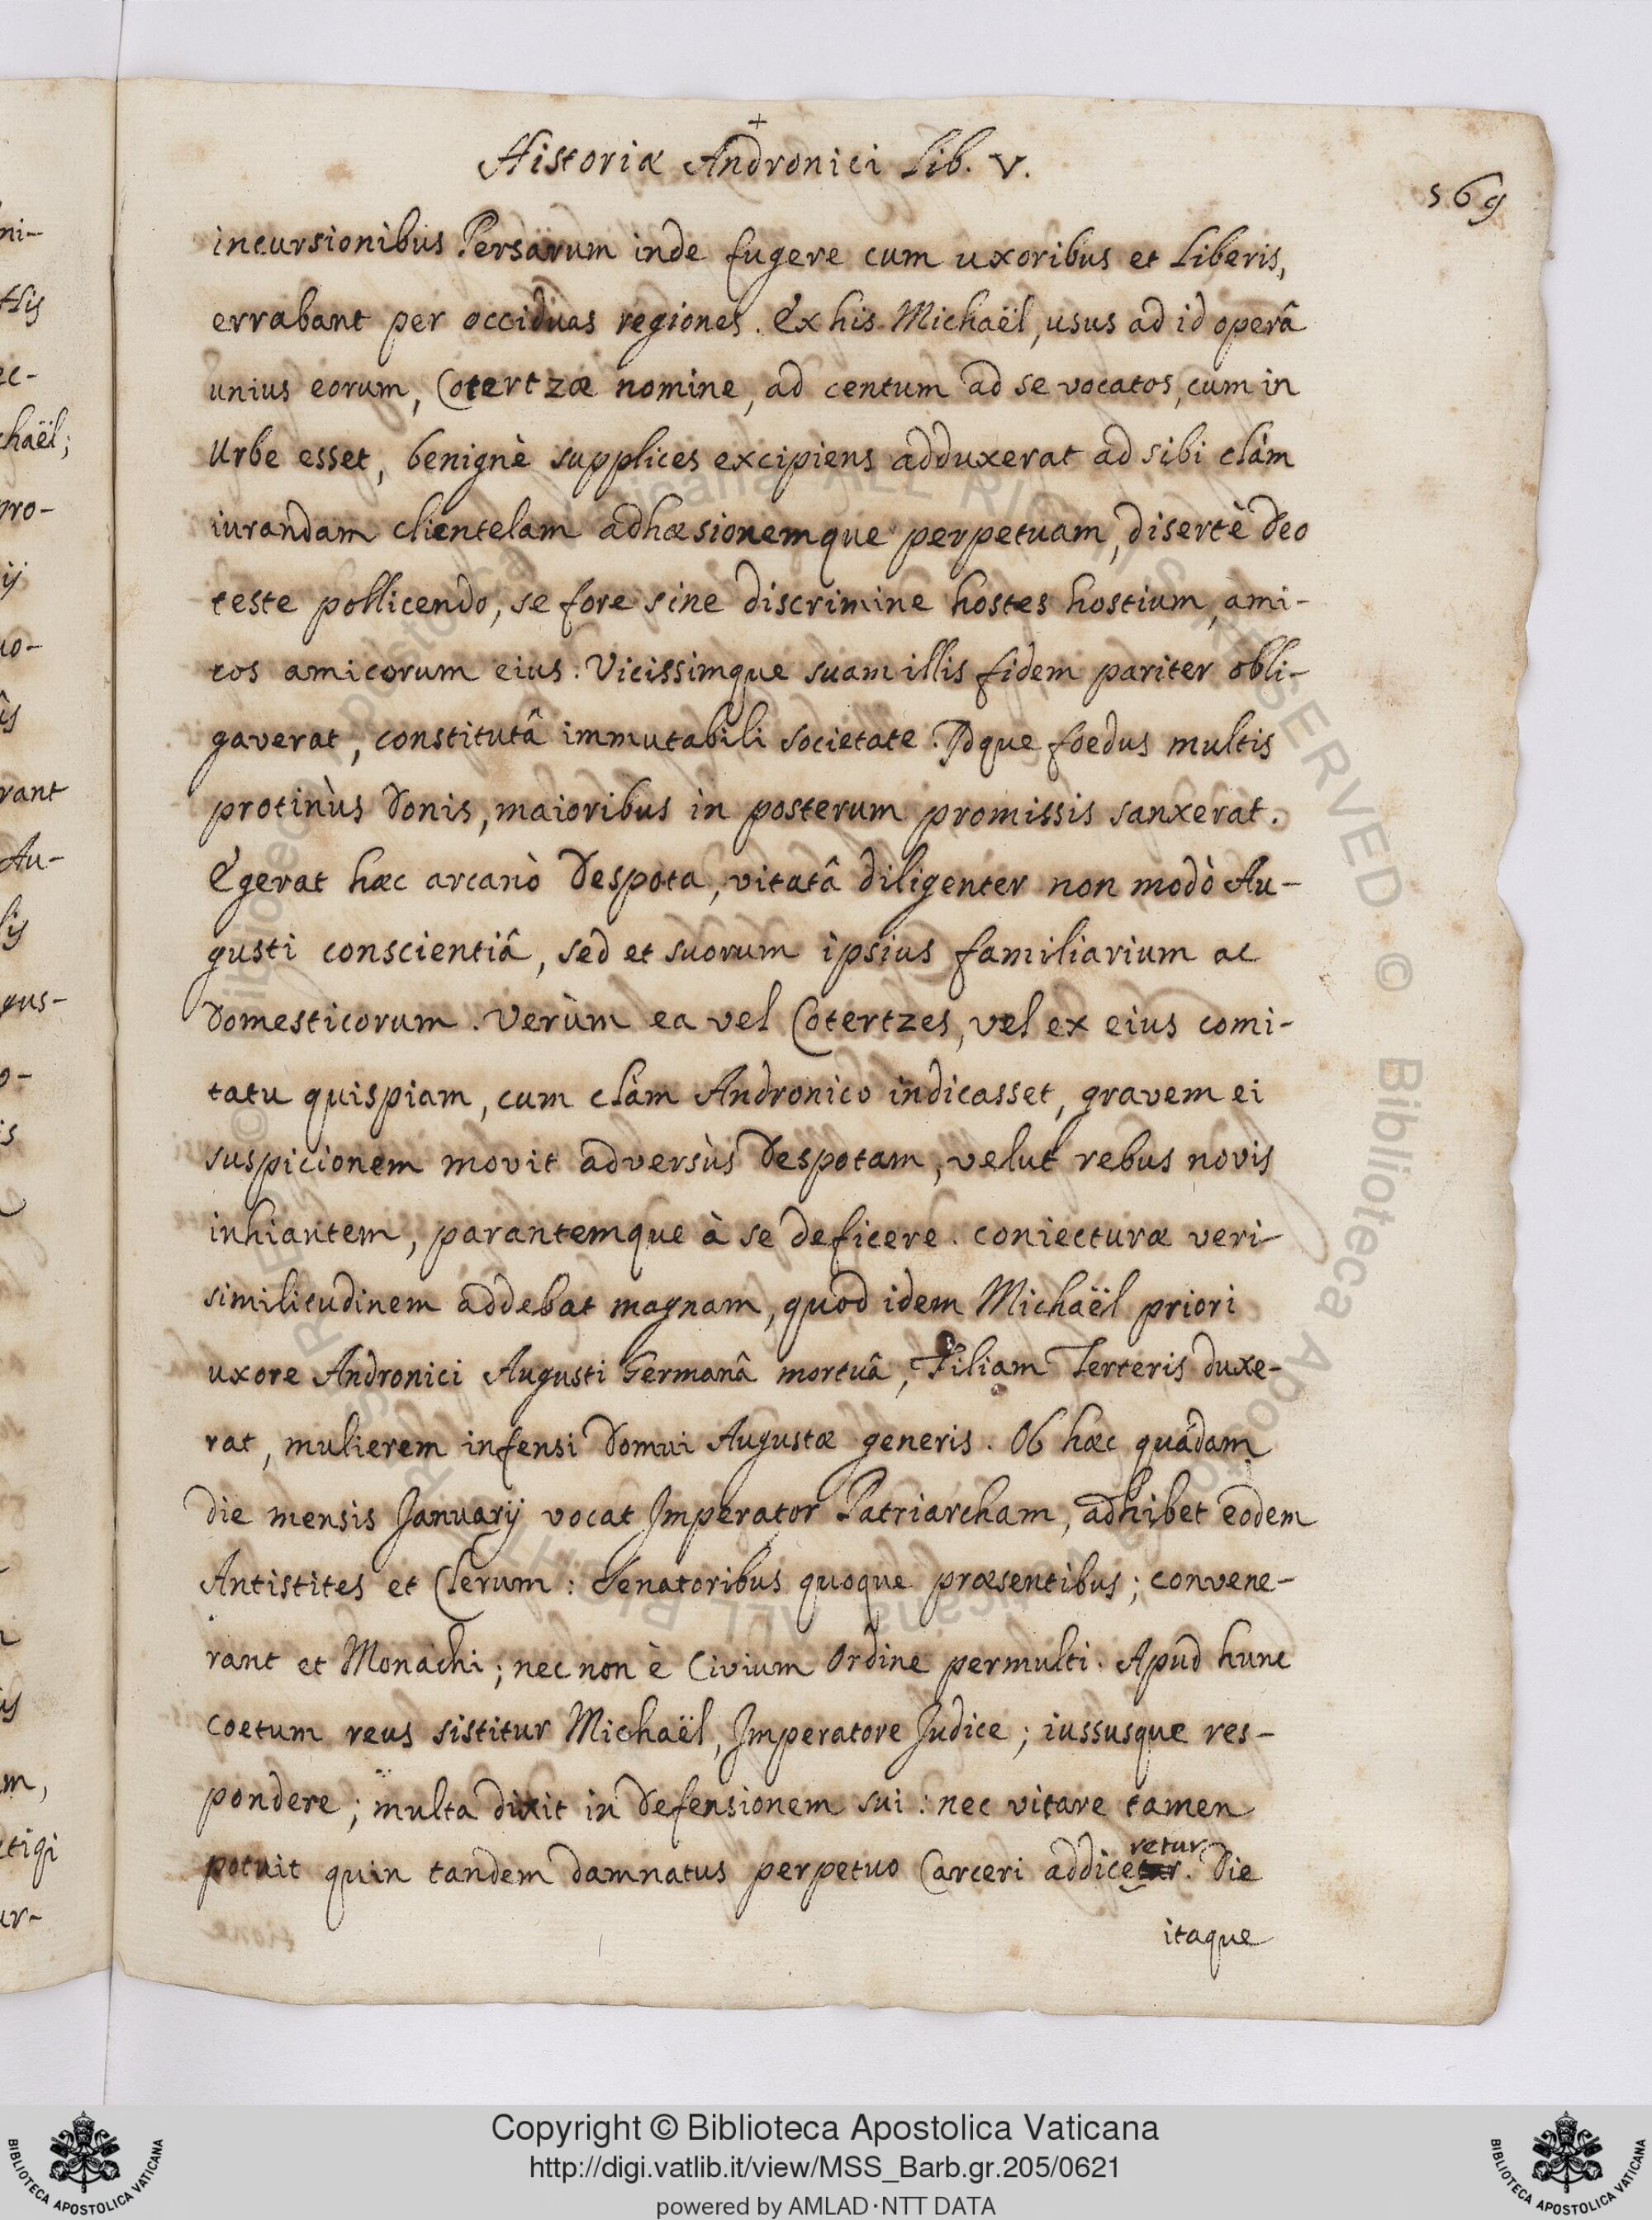 +
Historiæ Andronici Lib. V.
569
incursionibus Persarum inde fugere cum uxoribus et Liberis,
errabant per occiduas regiones. Ex his Michaël, usus ad id operâ
unius eorum, Cotertzæ nomine, ad centum ad se vocatos, cum in
Urbe esset, benignè supplices excipiens adduxerat ad sibi clàm
iurandam clientelam adhæsionemque perpetuam, disertè Deo
teste pollicendo, se fore sine discrimine hostes hostium, ami-
cos amicorum eius. Vicissimque suam illis fidem pariter obli-
gaverat, constitutâ immutabili societate. Idque foedus multis
protinùs donis, maioribus in posterum promissis sanxerat.
Egerat hæc arcanò Despota, vitatâ diligenter non modò Au-
gusti conscientiâ, sed et suorum ipsius familiarium ac
domesticorum. Verùm ea vel Cotertzes, vel ex eius comi-
tatu quispiam, cum clàm Andronico indicasset, gravem ei
suspicionem movit adversùs Despotam, velut rebus novis
inhiantem, parantemque à se deficere. coniecturæ veri-
similitudinem addebat magnam, quod idem Michaël priori
uxore Andronici Augusti Germanâ mortuâ, Filiam Terteris duxe-
rat, mulierem infensi domui Augustæ generis. Ob hæc quâdam
die mensis Januarij vocat Imperator Patriarcham, adhibet eodem
Antistites et Clerum: Senatoribus quoque præsentibus; convene-
rant et Monachi; nec non è Civium Ordine permulti. Apud hunc
coetum reus sistitur Michaël, Imperatore Judice; iussusque res-
pondere; multa dixit in defensionem sui: nec vitare tamen
potuit quin tandem damnatus perpetuo Carceri addiceretur. Die
itaque
Copyright © Biblioteca Apostolica Vaticana
http://digi.vatlib.it/view/MSS_Barb.gr.205/0621
powered by AMLAD·NTT DATA